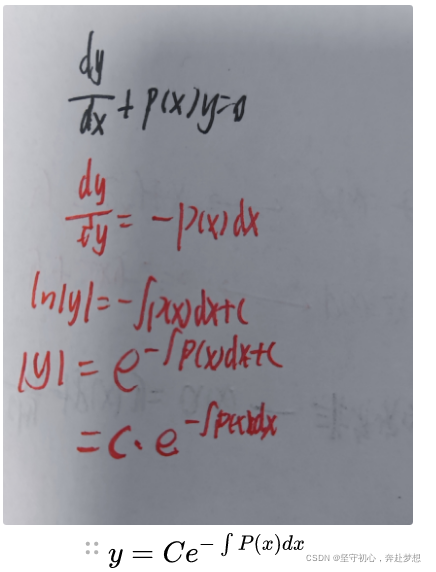 dy/dx + P(x)y=0
dy/dy = -P(x)dx
ln|y| = -∫P(x)dx+C
|y| = e^{-∫P(x)dx+C}
= C·e^{-∫P(x)dx}
y = Ce^{-∫P(x)dx}
CSDN @坚守初心，奔赴梦想